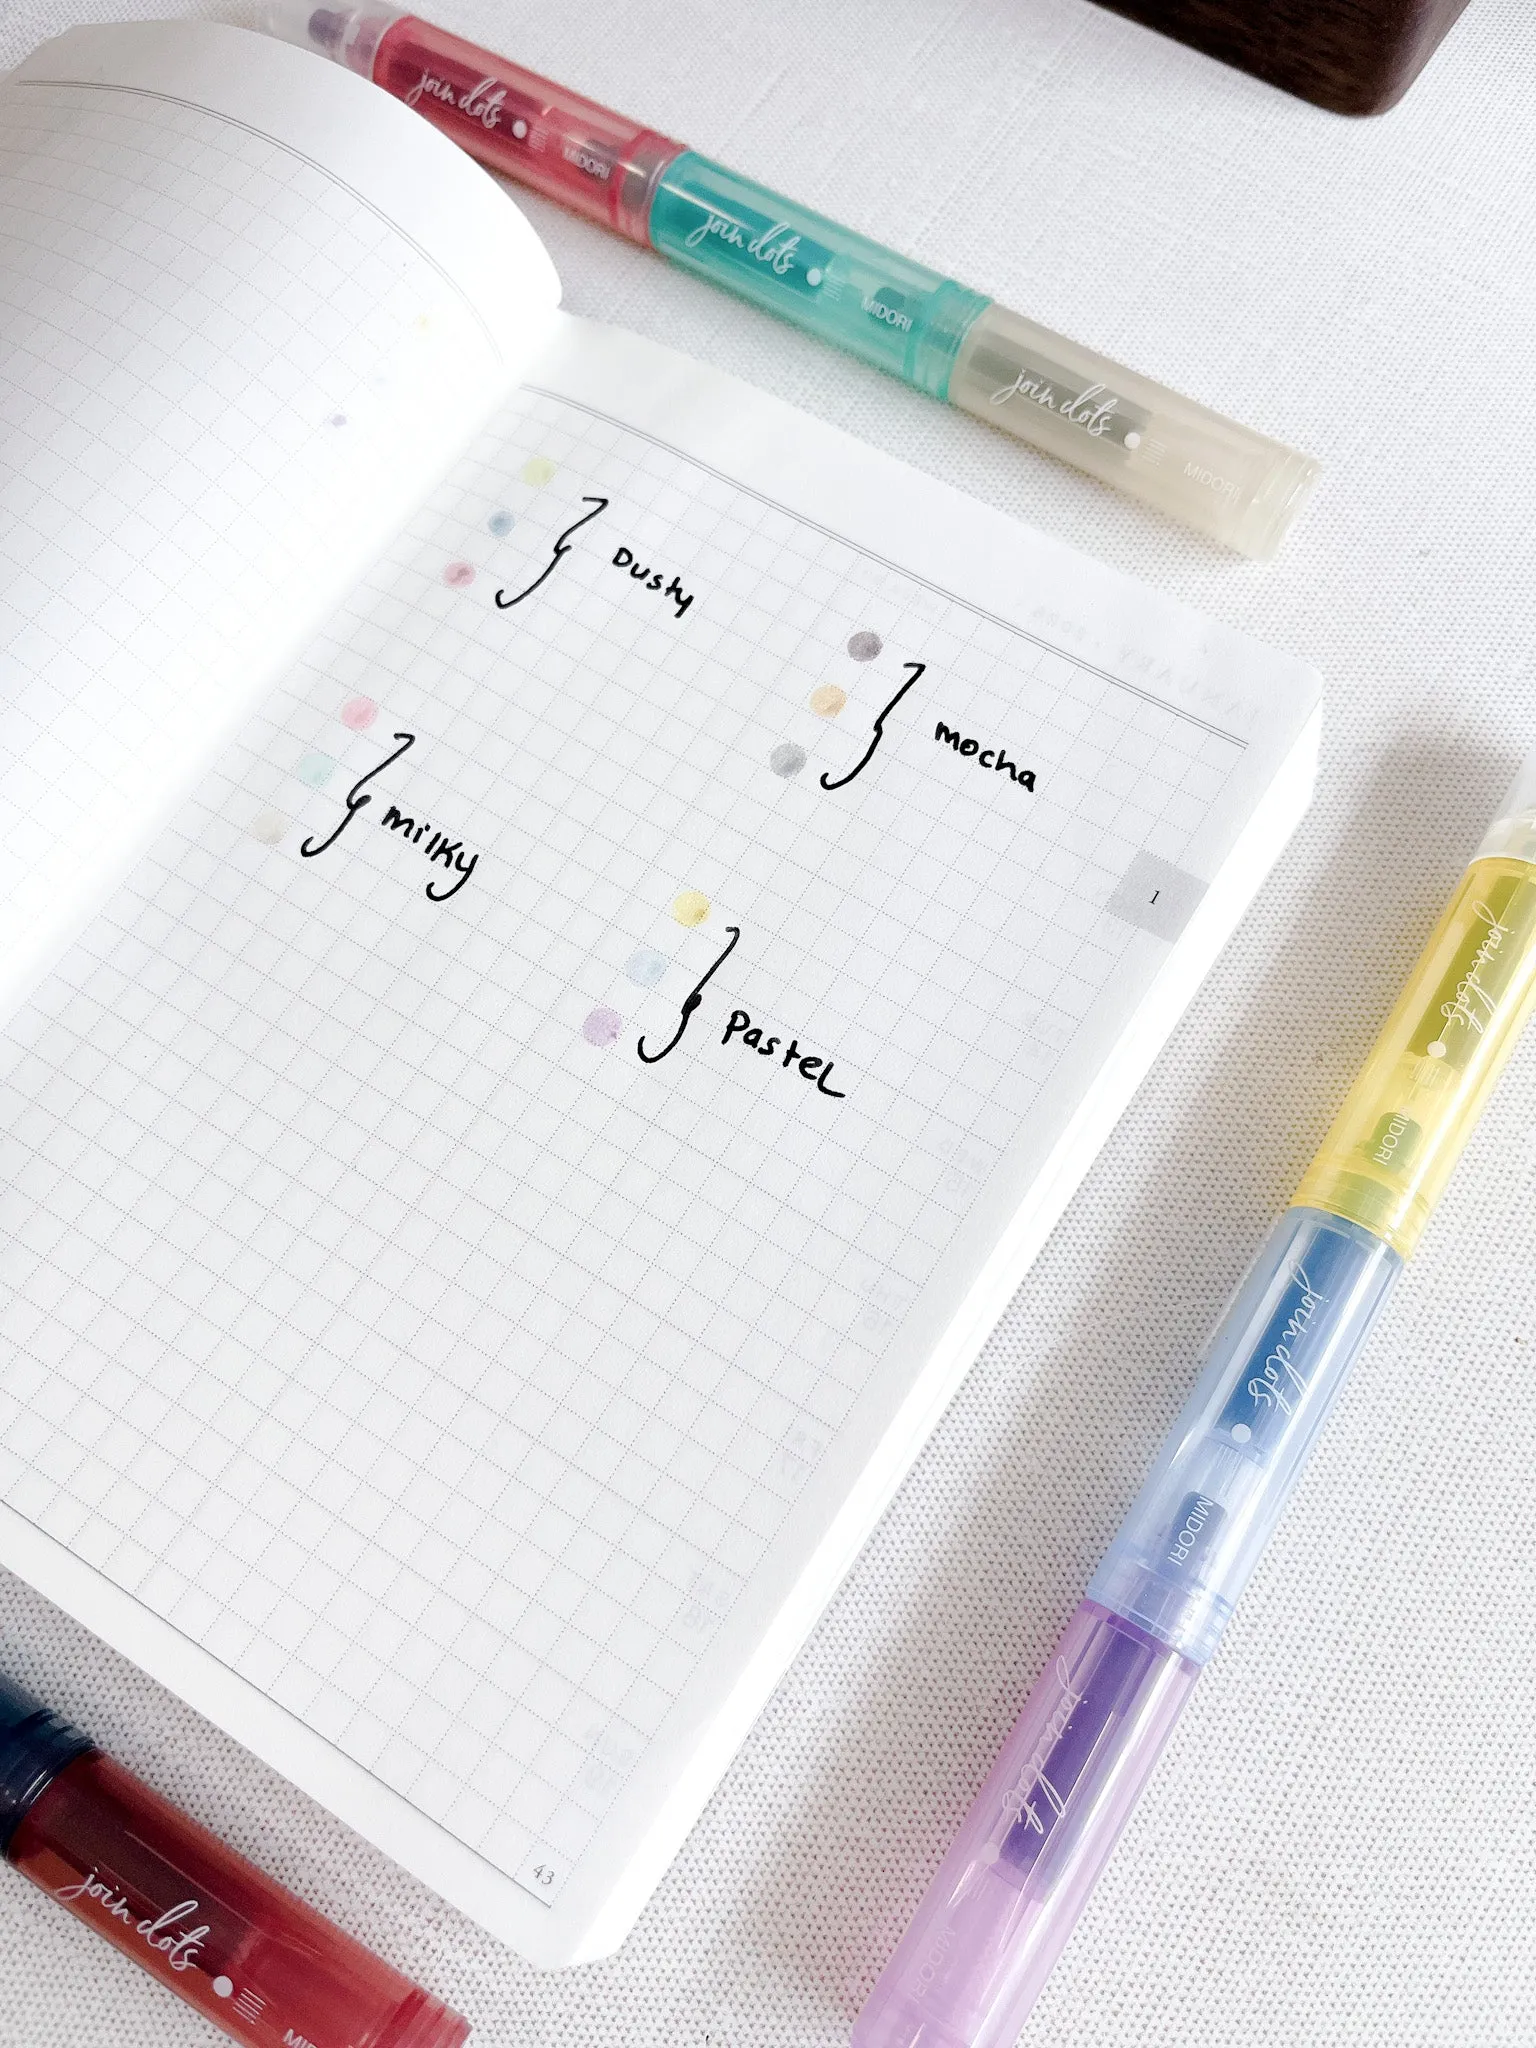 join dots
MIDORI
join dots
MIDORI
join dots
MIDORI
Dusty
mocha
milky
1
Pastel
join dots
MIDORI
join dots
MIDORI
join dots
MIDORI
43
join dots